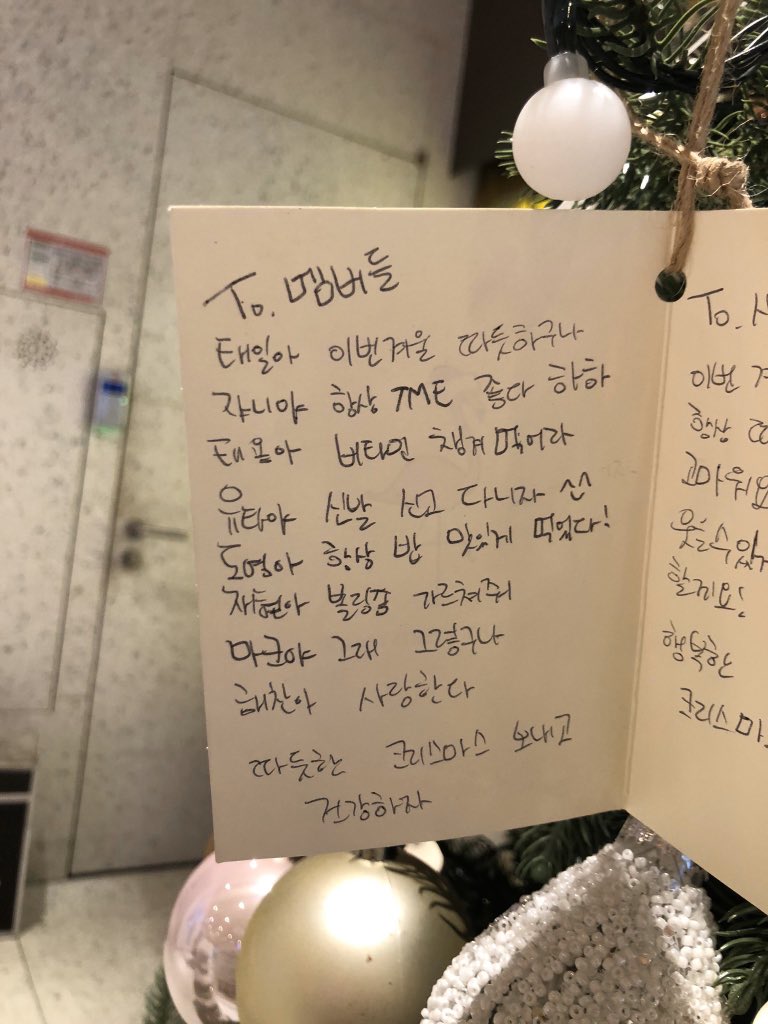 To. 멤버들
태일아 이번겨울 따듯하구나
쟈니야 항상 TME 좋다 하하
태용아 비타민 챙겨먹어라
유타야 신발 신고 다니자 ^^
도영아 항상 밥 맛있게 먹었다!
재현아 볼링좀 가르쳐줘
마크야 그래 그렇구나
해찬아 사랑한다
따듯한 크리스마스 보내고
건강하자
To.
이번
항상
고마워요
웃을수있게
할게요!
행복한
크리스마